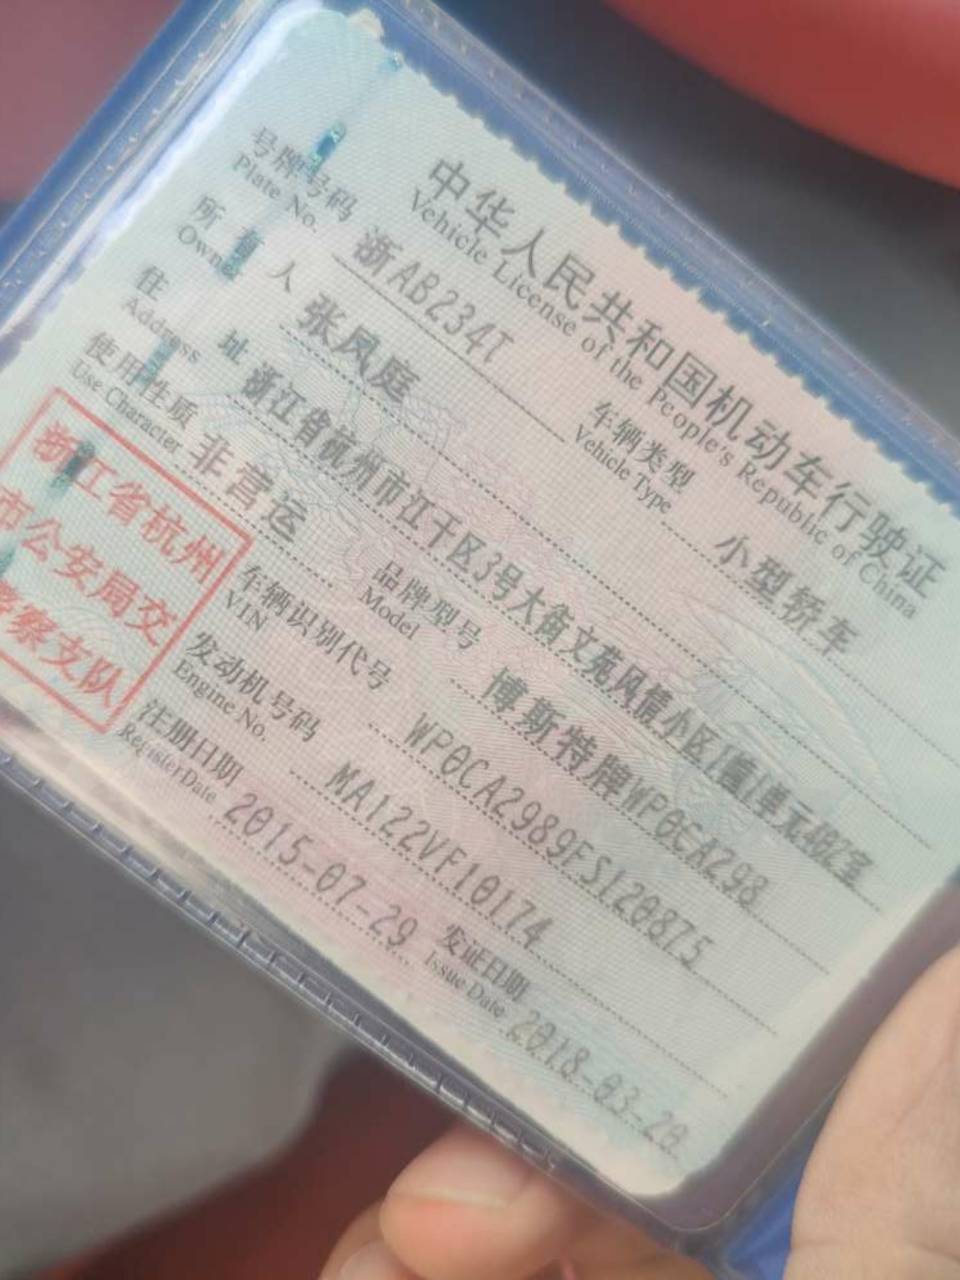 中华人民共和国机动车行驶证
Vehicle License of the People's Republic of China
号牌号码 浙AB234T 车辆类型 小型轿车
Plate No. Vehicle Type
所有人 张凤庭
Owner
住址 浙江省杭州市江干区3号大街文苑风情小区1幢1单元402室
Address
使用性质 非营运 品牌型号 博斯特牌WP0CA298
Use Character Model
车辆识别代号 WP0CA2989FS120875
VIN
发动机号码 MA122VF10174
Engine No.
注册日期 2015-07-29 发证日期 2018-03-28
Register Date Issue Date
浙江省杭州
市公安局交
警察支队